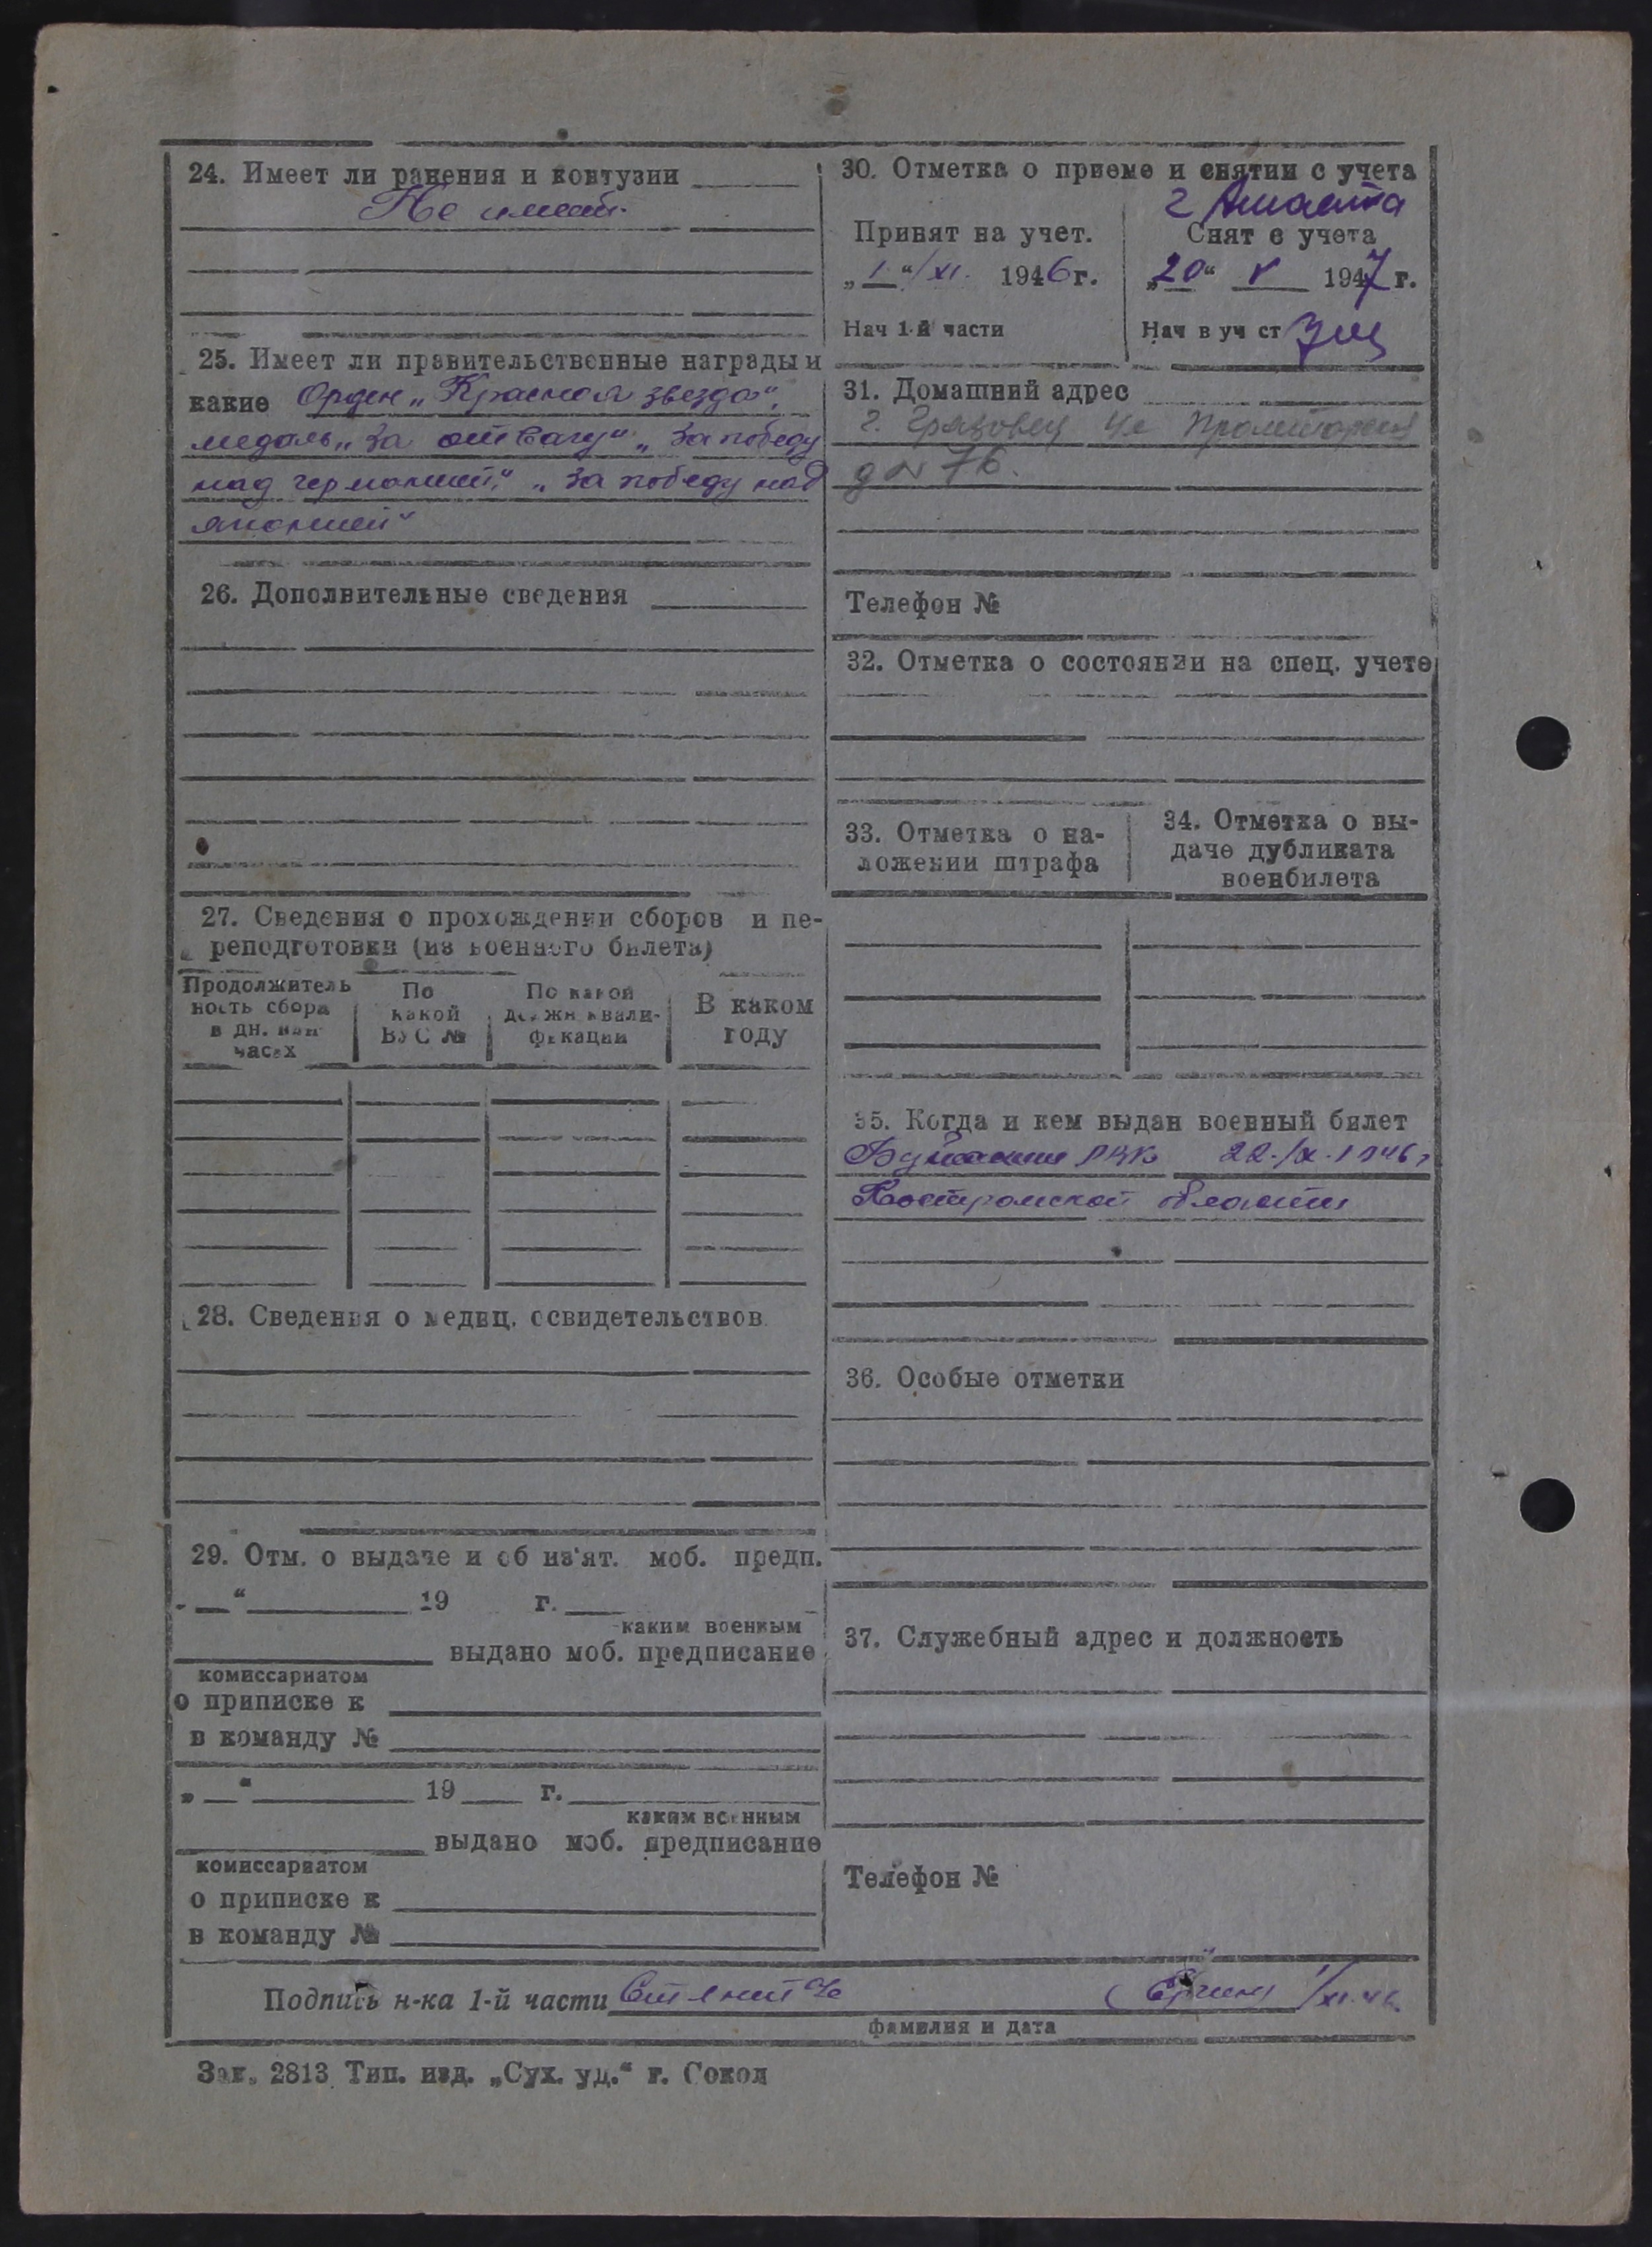 24. Имеет ли ранения и контузии
Не имеет.
25. Имеет ли правительственные награды и
какие Орден „Красная звезда",
медаль „За отвагу" „За победу
над германией," „За победу над
японией"
26. Дополнительные сведения
27. Сведения о прохождении сборов и пе-
реподготовки (из военного билета)
Продолжитель
ность сбора
в дн. или
часах
По
какой
ВУС №
По какой
должн квали-
фикации
В каком
году
28. Сведения о медиц. освидетельствов.
29. Отм. о выдаче и об из'ят. моб. предп.
„ " 19 г.
каким военным
выдано моб. предписание
комиссариатом
о приписке к
в команду №
„ " 19 г.
каким военным
выдано моб. предписание
комиссариатом
о приписке к
в команду №
30. Отметка о приеме и снятии с учета
Принят на учет.
„1"/XI. 1946 г.
Нач 1-й части
г
Снят с учета
„20" V 1947 г.
Нач в уч ст
31. Домашний адрес
г. Грязовец ул Пролетарская
д № 76.
Телефон №
32. Отметка о состоянии на спец. учете
33. Отметка о на-
ложении штрафа
34. Отметка о вы-
даче дубликата
военбилета
35. Когда и кем выдан военный билет
РВК 22./IX.1946 г
Костромской области
36. Особые отметки
37. Служебный адрес и должность
Телефон №
Подпись н-ка 1-й части 1/XI.46.
фамилия и дата
Зак. 2813 Тип. изд. „Сух. уд." г. Сокол